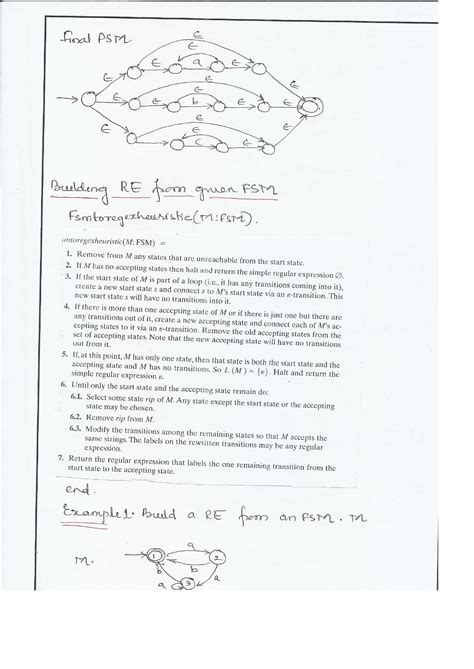 Final FSM
ε
ε
ε a ε
ε
ε
ε
ε ε b ε ε
ε
ε
ε
ε c ε
Building RE from given FSM
Fsmtoregexheuristic(M:FSM).
mtoregexheuristic(M: FSM) =
1. Remove from M any states that are unreachable from the start state.
2. If M has no accepting states then halt and return the simple regular expression ∅.
3. If the start state of M is part of a loop (i.e., it has any transitions coming into it),
create a new start state s and connect s to M's start state via an ε-transition. This
new start state s will have no transitions into it.
4. If there is more than one accepting state of M or if there is just one but there are
any transitions out of it, create a new accepting state and connect each of M's ac-
cepting states to it via an ε-transition. Remove the old accepting states from the
set of accepting states. Note that the new accepting state will have no transitions
out from it.
5. If, at this point, M has only one state, then that state is both the start state and the
accepting state and M has no transitions. So L (M) = {ε}. Halt and return the
simple regular expression ε.
6. Until only the start state and the accepting state remain do:
6.1. Select some state rip of M. Any state except the start state or the accepting
state may be chosen.
6.2. Remove rip from M.
6.3. Modify the transitions among the remaining states so that M accepts the
same strings. The labels on the rewritten transitions may be any regular
expression.
7. Return the regular expression that labels the one remaining transition from the
start state to the accepting state.
end.
Example 1. Build a RE from an FSM. M
a
M. 1 2
b b
a 3 a